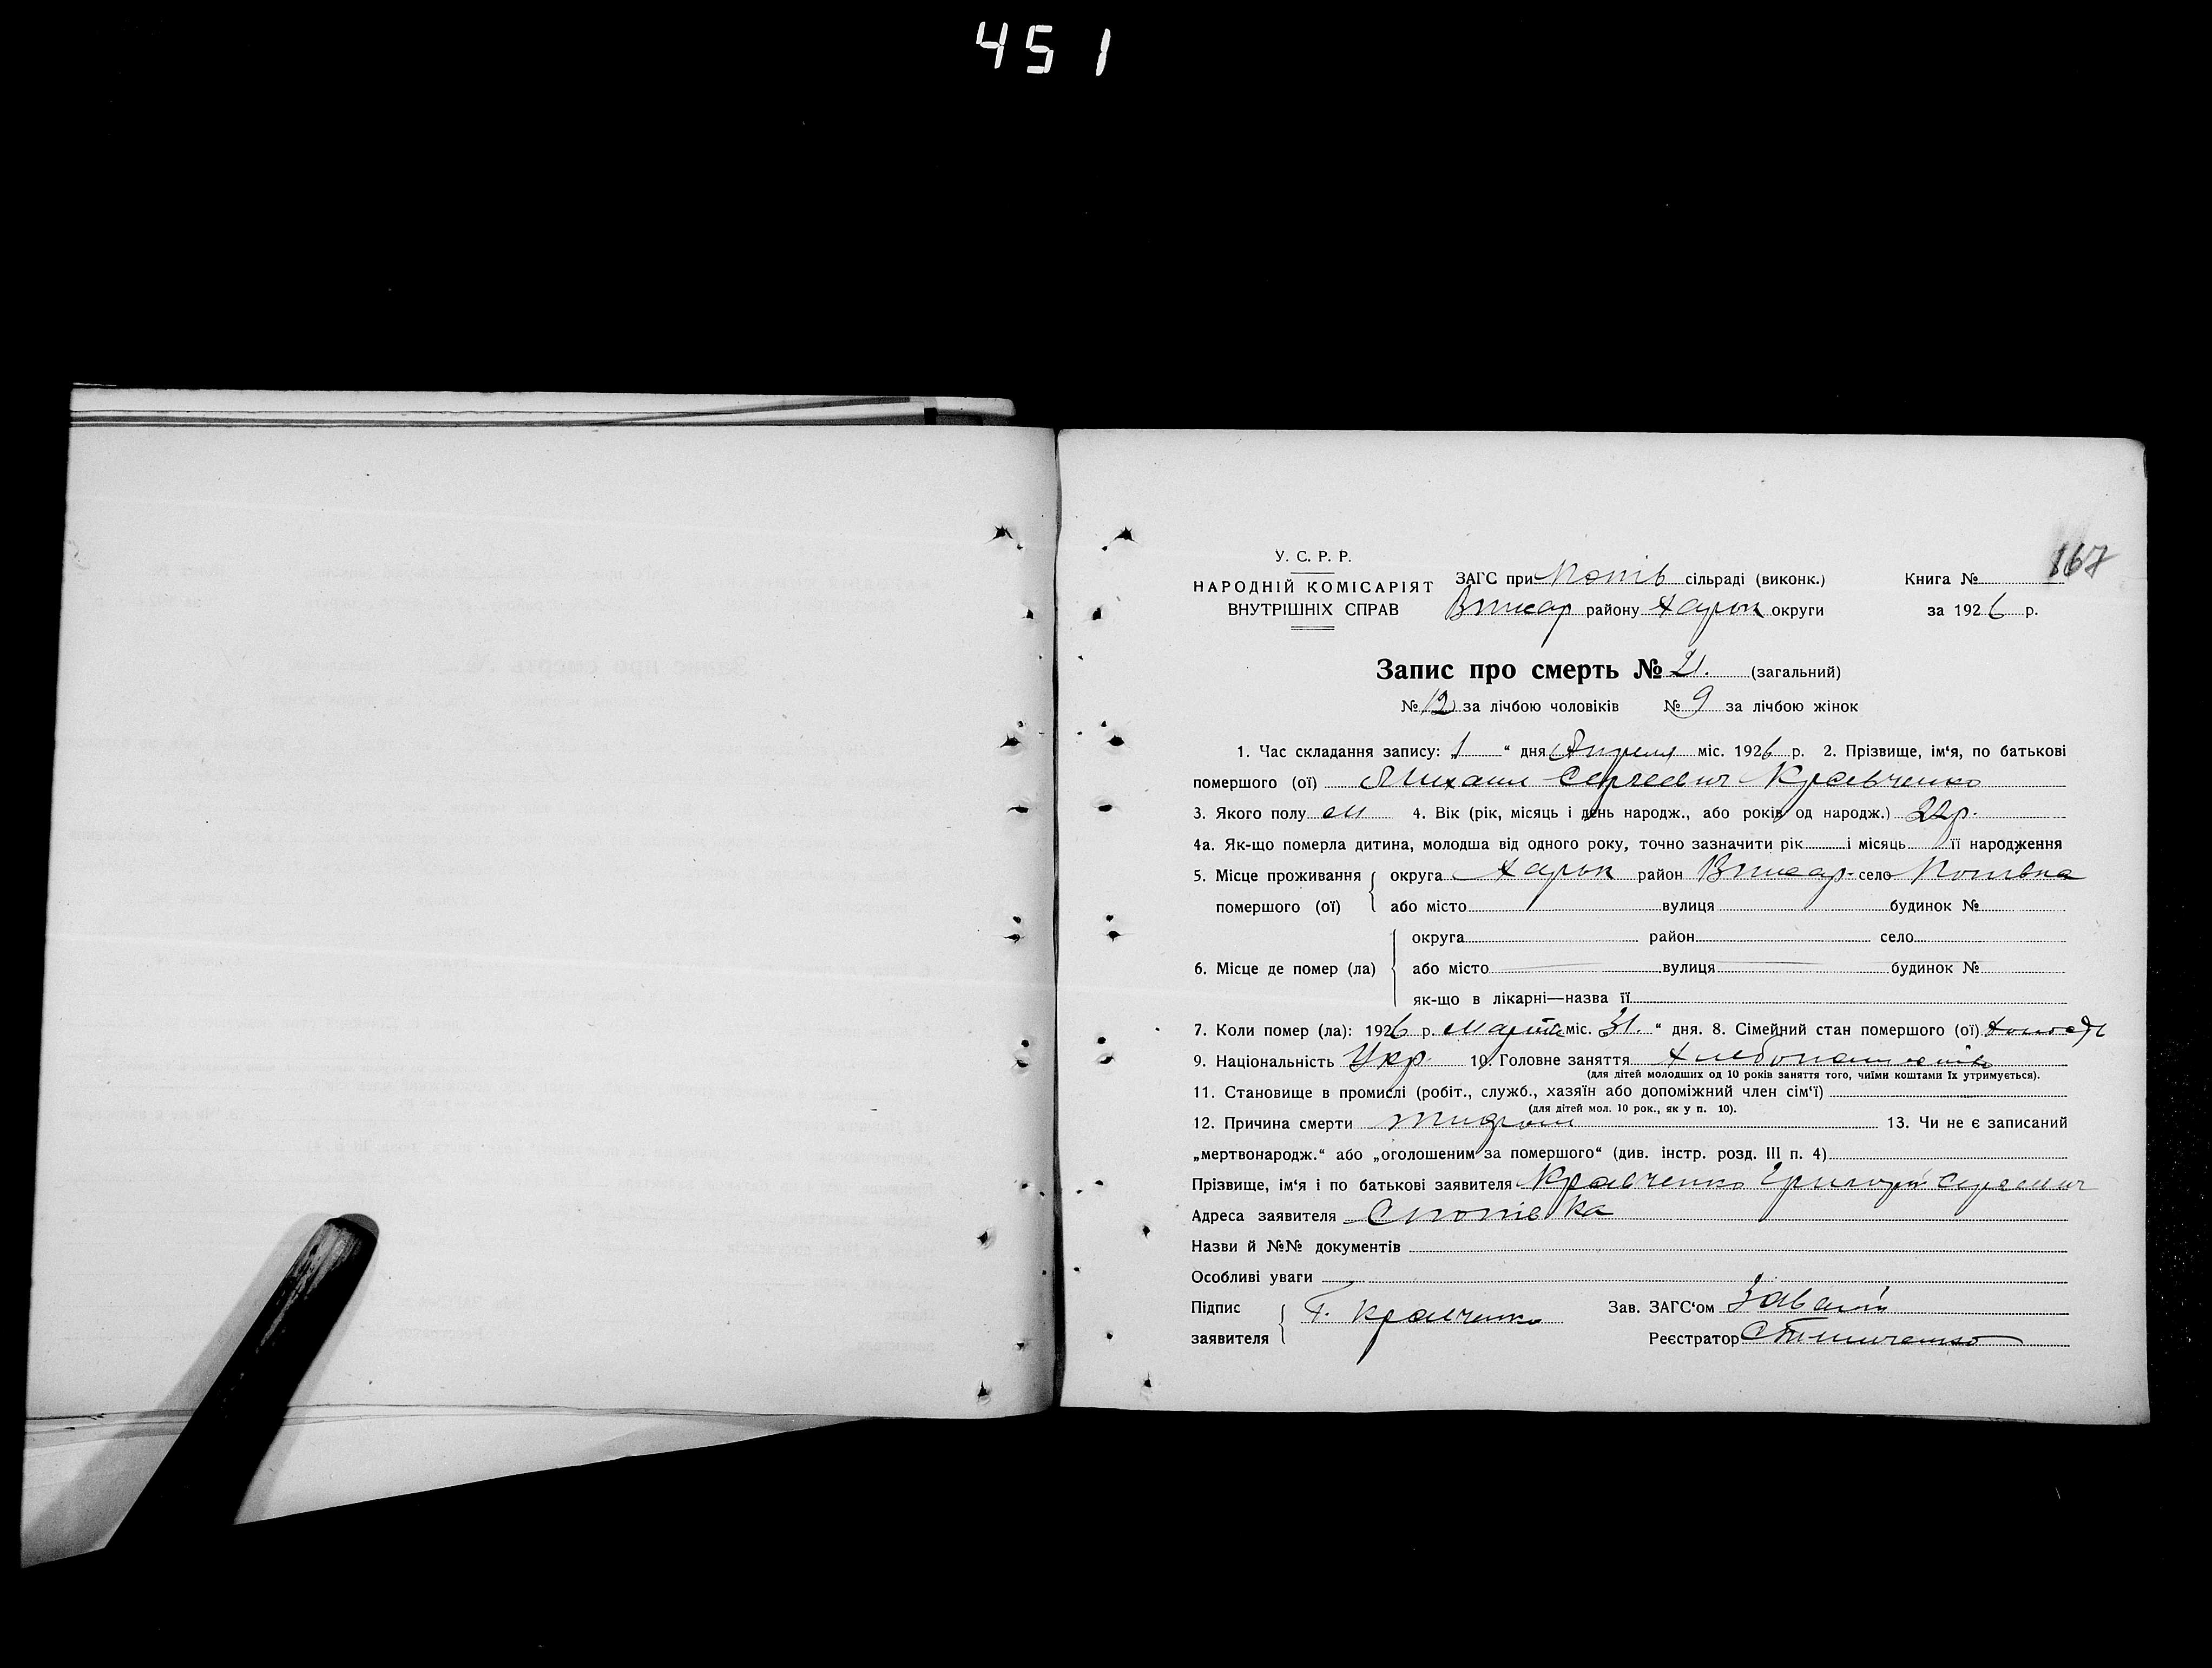 451
167
У. С. Р. Р.
НАРОДНІЙ КОМІСАРІЯТ
ВНУТРІШНІХ СПРАВ
ЗАГС при Мотів сільраді (виконк.)
району Харьк округи
Книга №
за 1926 р.
Запис про смерть № 21. (загальний)
№ 12 за лічбою чоловіків № 9 за лічбою жінок
1. Час складання запису: „1“ дня Апреля міс. 1926 р. 2. Прізвище, ім‘я, по батькові
помершого (ої) Михаил Сергеевич Кравченко
3. Якого полу м 4. Вік (рік, місяць і день народж., або років од народж.) 22 р.
4а. Як-що померла дитина, молодша від одного року, точно зазначити рік і місяць її народження
5. Місце проживання помершого (ої) округа Харьк район село
або місто вулиця будинок №
6. Місце де помер (ла) округа район село
або місто вулиця будинок №
як-що в лікарні—назва її
7. Коли помер (ла): 1926 р. Марта міс. 31. “ дня. 8. Сімейний стан помершого (ої)
9. Національність Укр. 10. Головне заняття
(для дітей молодших од 10 років заняття того, чиїми коштами їх утримується).
11. Становище в промислі (робіт., служб., хазяїн або допоміжний член сім‘ї)
(для дітей мол. 10 рок., як у п. 10).
12. Причина смерти 13. Чи не є записаний
„мертвонародж.“ або „оголошеним за помершого“ (див. інстр. розд. III п. 4)
Прізвище, ім‘я і по батькові заявителя Кравченко Григорій Сергеевич
Адреса заявителя
Назви й №№ документів
Особливі уваги
Підпис заявителя Г. Кравченко
Зав. ЗАГС‘ом
Реєстратор